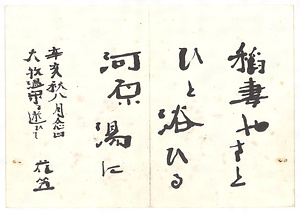 稲妻やさと
ひと浴ひる
河原湯に
辛亥秋八月念四
大牧温泉に遊ひて